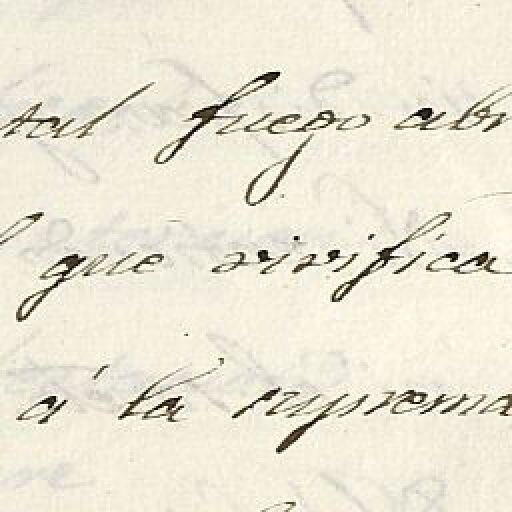 tal fuego abr
que vivifica
á la suprema